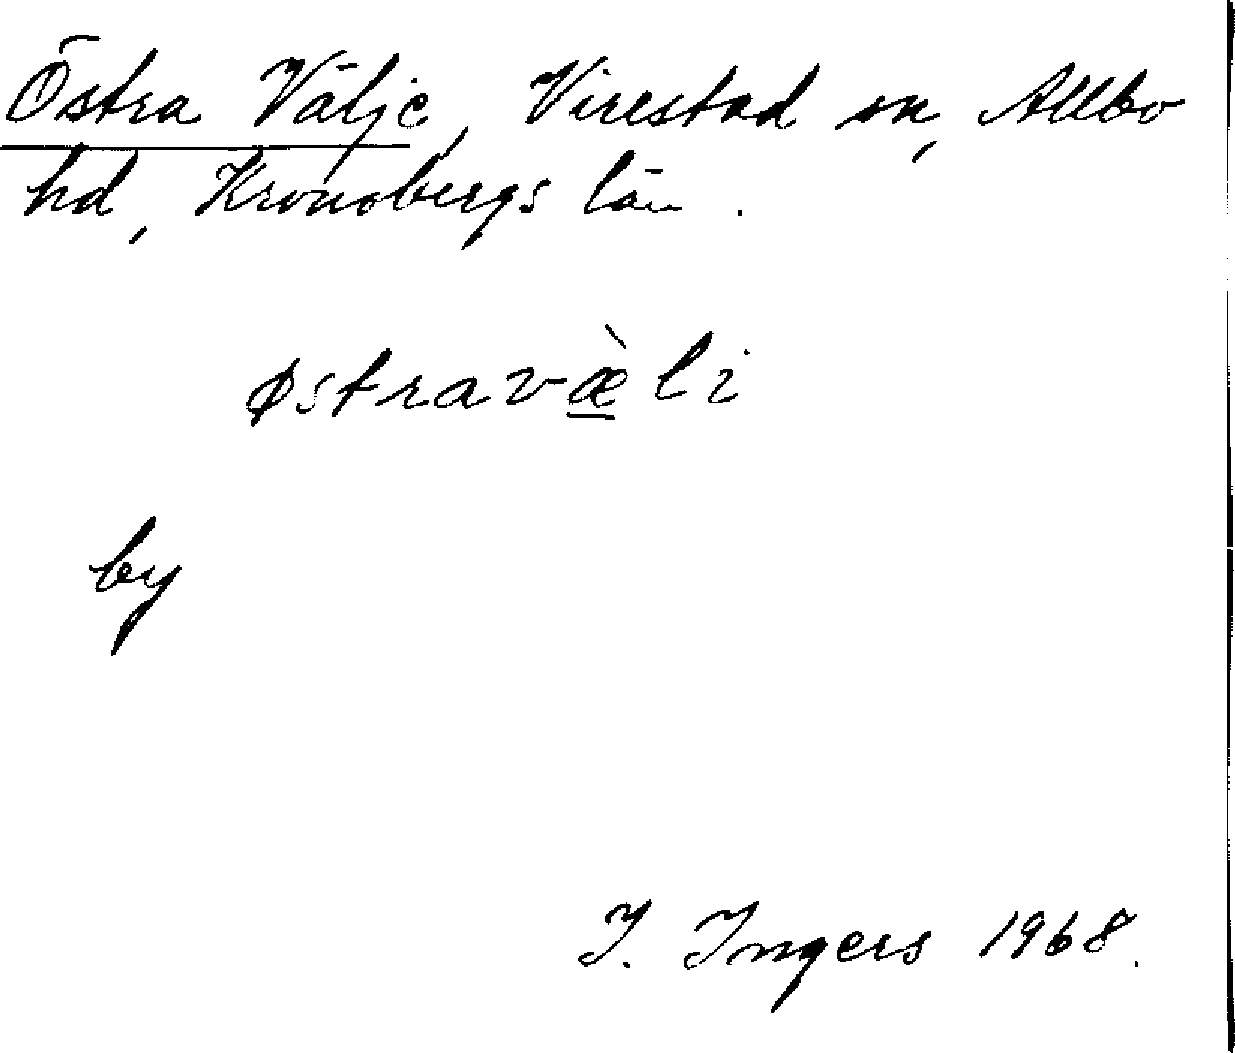 Östra Välje, Virestad sn, Allbo
hd, Kronobergs län.
østravæ̀li
by
I. Ingers 1968.